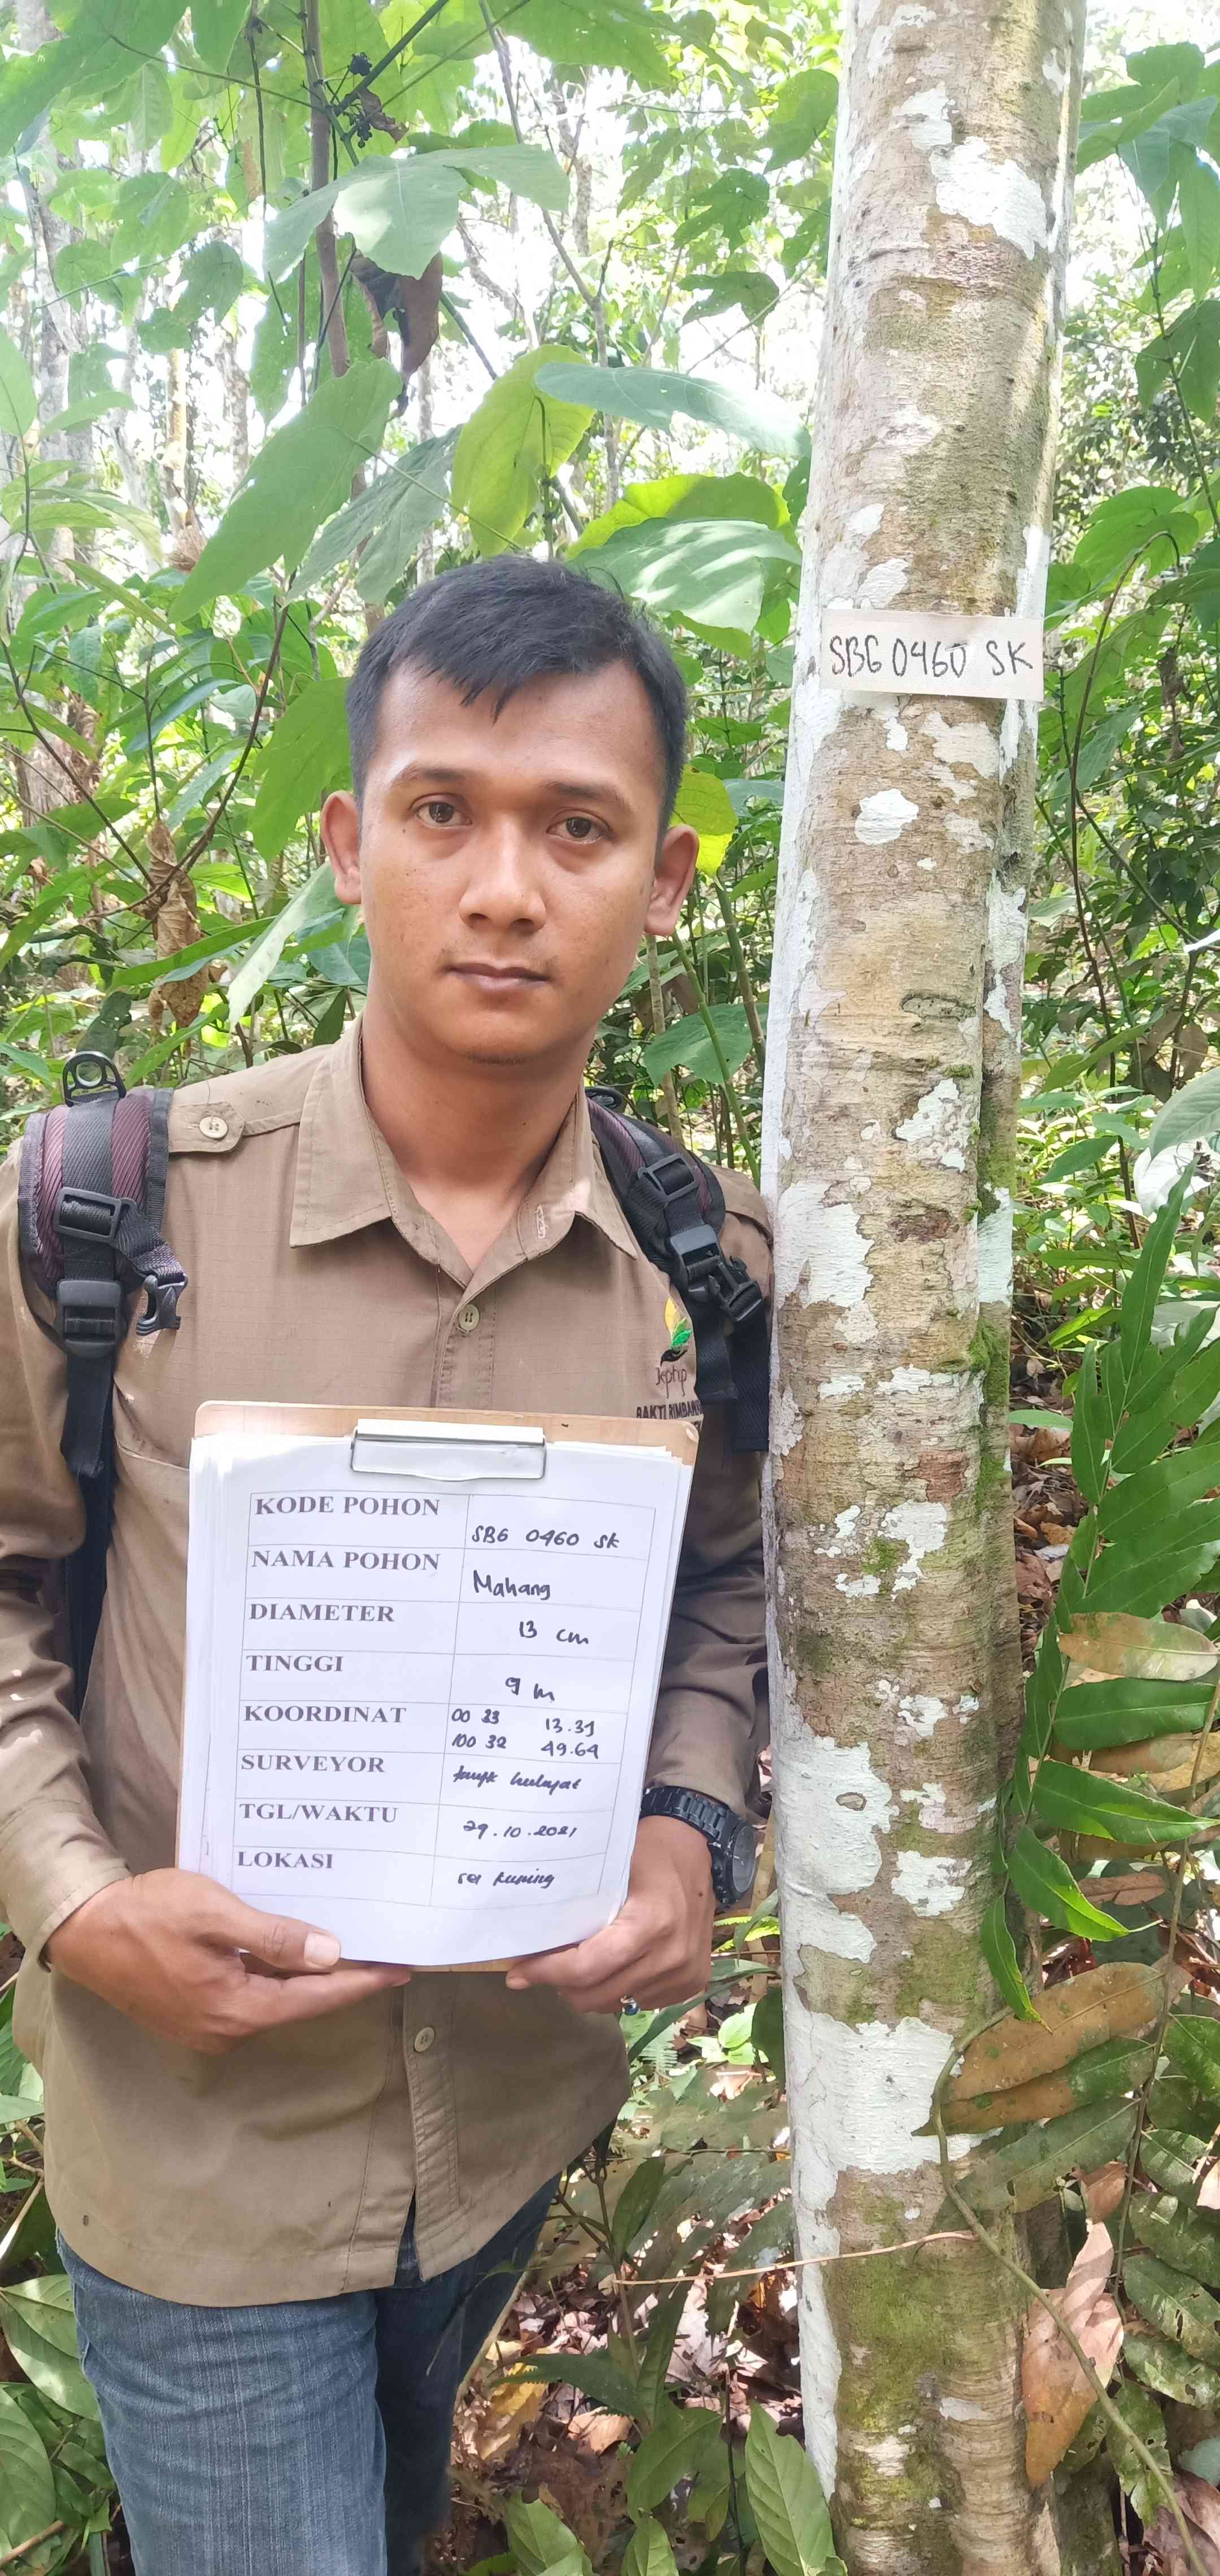 SBG 0460 SK
kphp
BAKTI RIMBA
KODE POHON
SBG 0460 SK
NAMA POHON
Mahang
DIAMETER
13 cm
TINGGI
9 m
KOORDINAT
00 33 13.31
100 32 49.64
SURVEYOR
TGL/WAKTU
29.10.2021
LOKASI
sei kuning